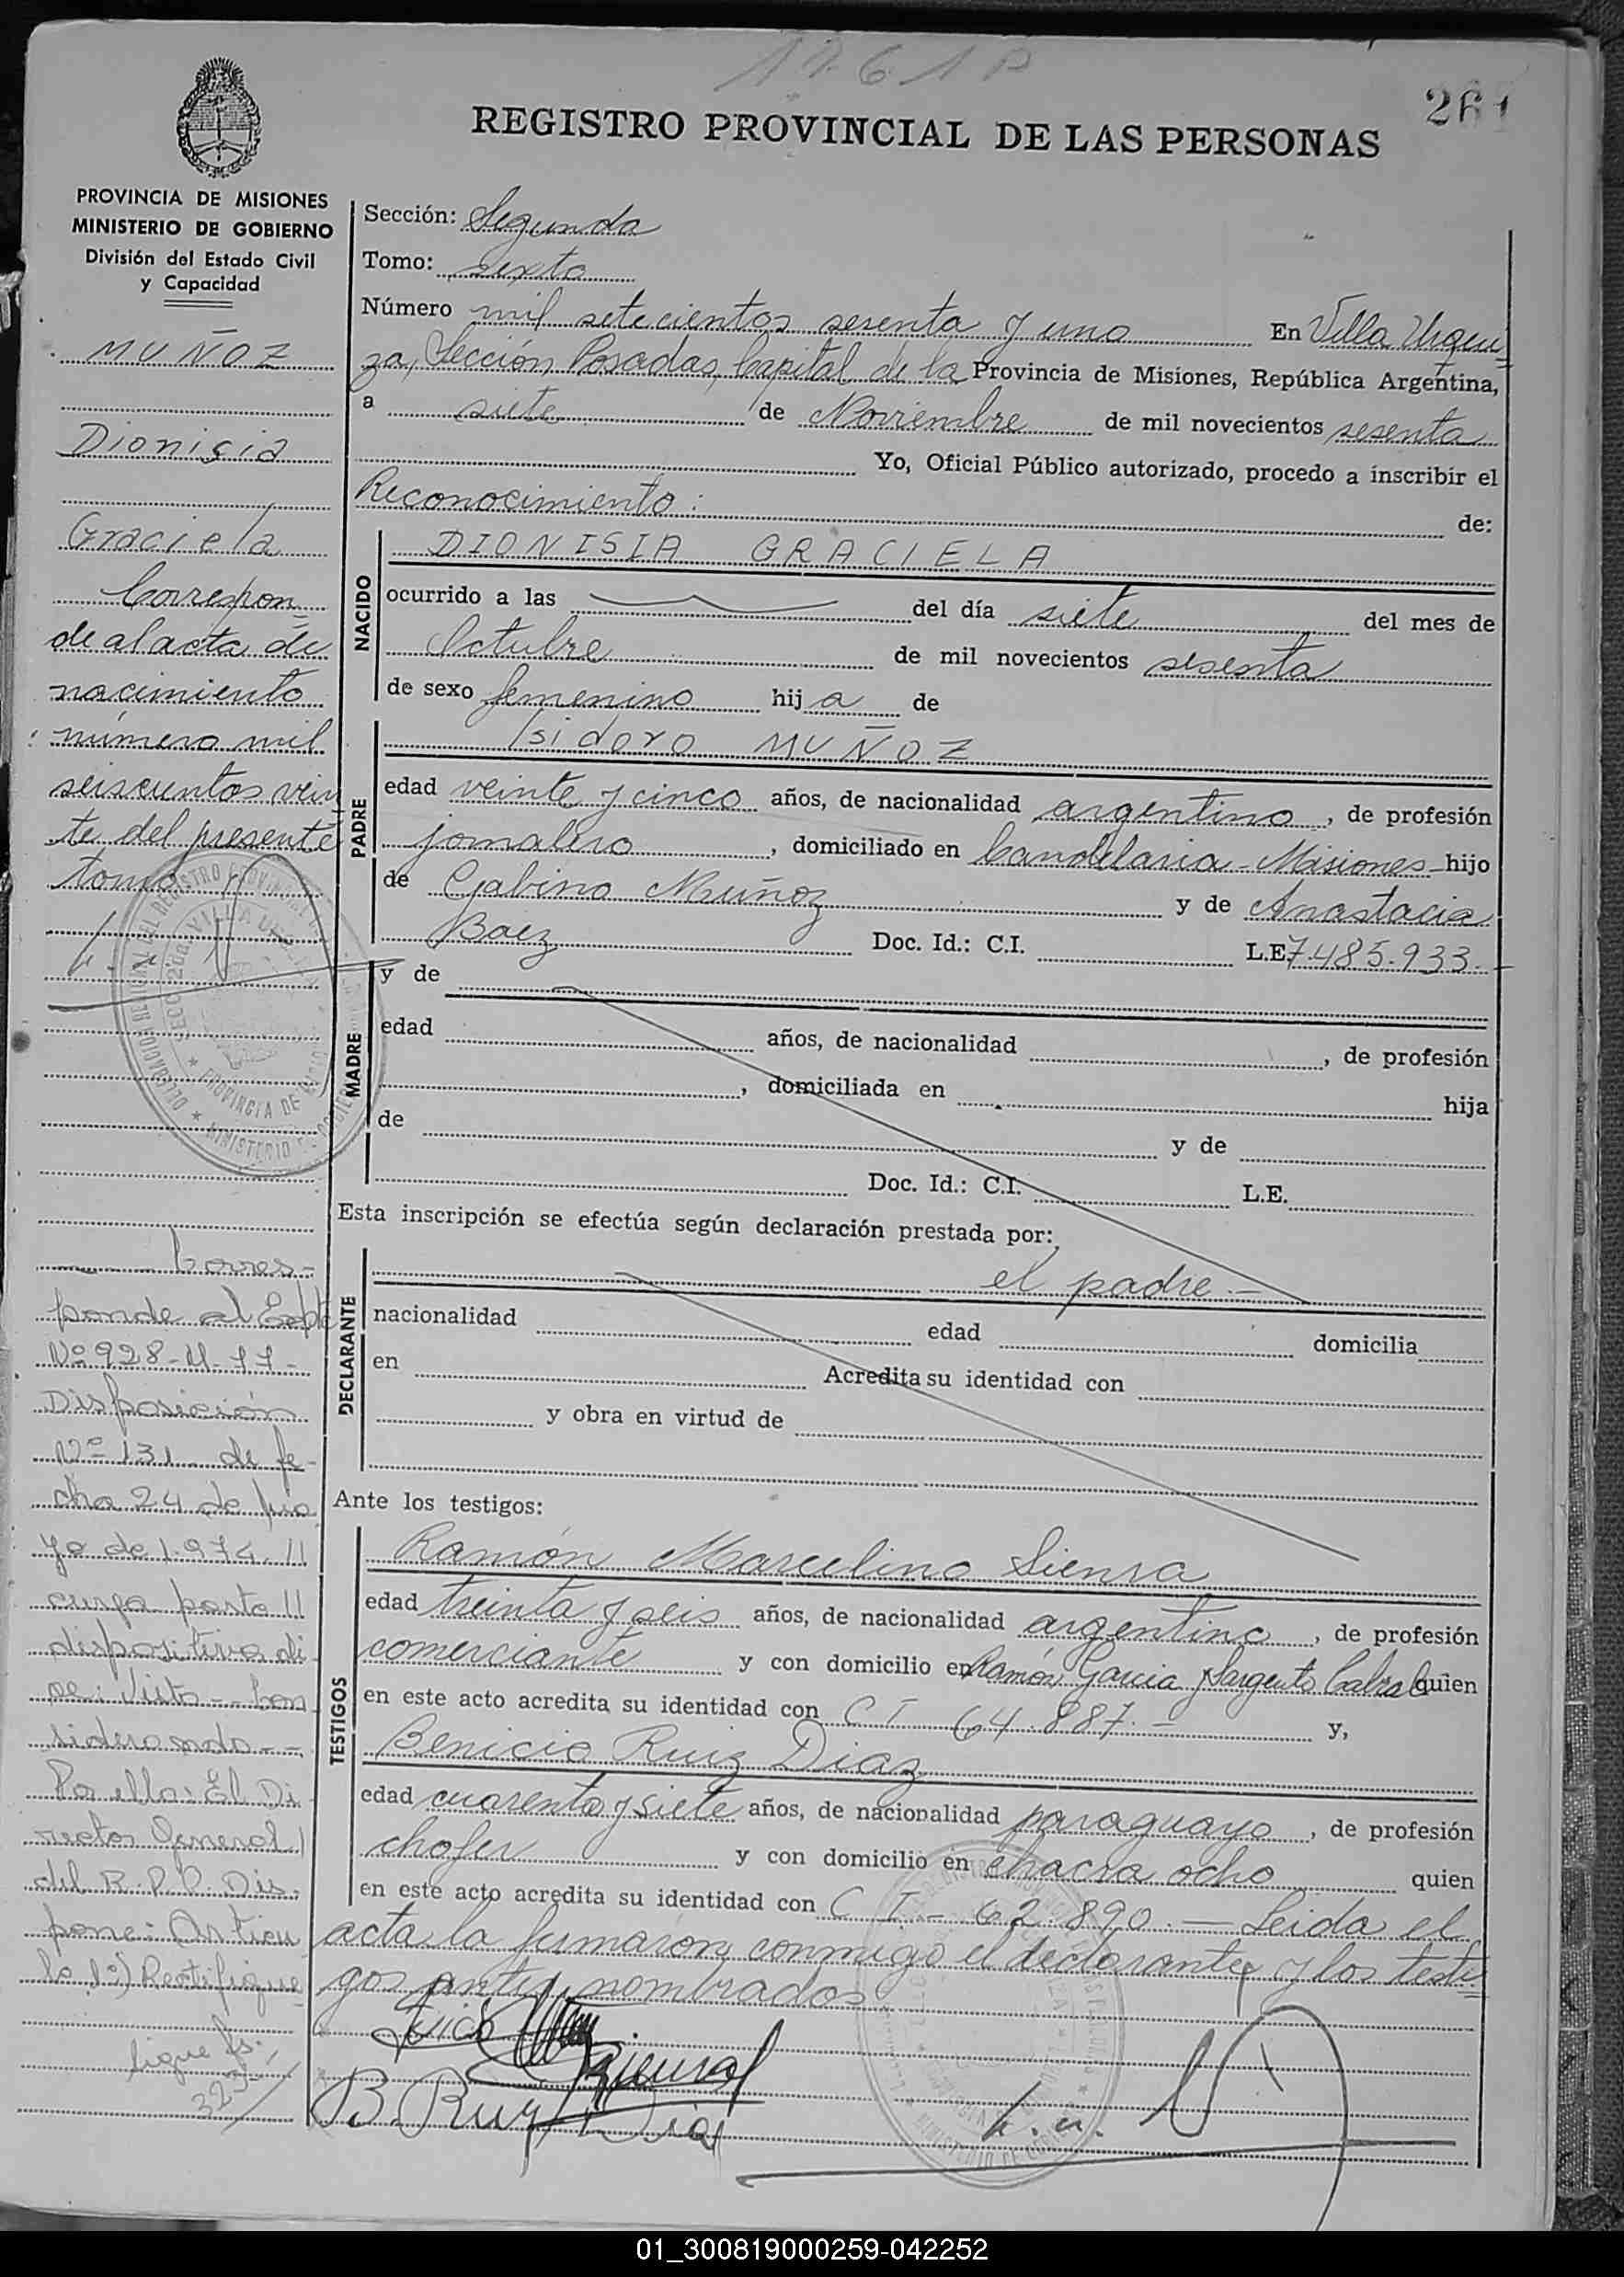 1761 P
261
REGISTRO PROVINCIAL DE LAS PERSONAS
PROVINCIA DE MISIONES
MINISTERIO DE GOBIERNO
División del Estado Civil
y Capacidad
MUÑOZ
Dionisia
Graciela
Correspon
de al acta de
nacimiento
número mil
seiscientos vein
te del presente
tomo
Corres-
ponde al Expte
Nº 928-M-77-
Disposición
Nº 131 de fe-
cha 24 de ma
yo de 1.974 //
cuya parte //
dispositiva di
ce: Visto -- Con
siderando --
Por ello: El Di
rector General
del R.P.P. Dis-
pone: Artícu
lo 1º) Rectifíque
sigue fs.
323
Sección: Segunda
Tomo: sexto
Número mil setecientos sesenta y uno En Villa Urqui-
za, Sección Posadas, Capital de la Provincia de Misiones, República Argentina,
a siete de Noviembre de mil novecientos sesenta
Yo, Oficial Público autorizado, procedo a inscribir el
Reconocimiento: de:
NACIDO
DIONISIA GRACIELA
ocurrido a las del día siete del mes de
Octubre de mil novecientos sesenta
de sexo femenino hij a de
PADRE
Isidoro MUÑOZ
edad veinte y cinco años, de nacionalidad argentino, de profesión
jornalero, domiciliado en Candelaria - Misiones - hijo
de Gabino Muñoz y de Anastacia
Baez Doc. Id.: C.I. L.E. 7.485.933.-
MADRE
y de
edad años, de nacionalidad , de profesión
, domiciliada en hija
de y de
Doc. Id.: C.I. L.E.
Esta inscripción se efectúa según declaración prestada por:
DECLARANTE
el padre.-
nacionalidad edad domicilia
en Acredita su identidad con
y obra en virtud de
Ante los testigos:
TESTIGOS
Ramón Marcelino Sienra
edad treinta y seis años, de nacionalidad argentino, de profesión
comerciante y con domicilio en Ramón Garcia y Sargento Cabral quien
en este acto acredita su identidad con C I 64.887.- y,
Benicio Ruiz Diaz
edad cuarenta y siete años, de nacionalidad paraguayo, de profesión
chofer y con domicilio en chacra ocho quien
en este acto acredita su identidad con C I - 62.890.- Leida el
acta la firmaron conmigo el declarante y los testi
gos antes nombrados
B. Ruiz Diaz
01_300819000259-042252